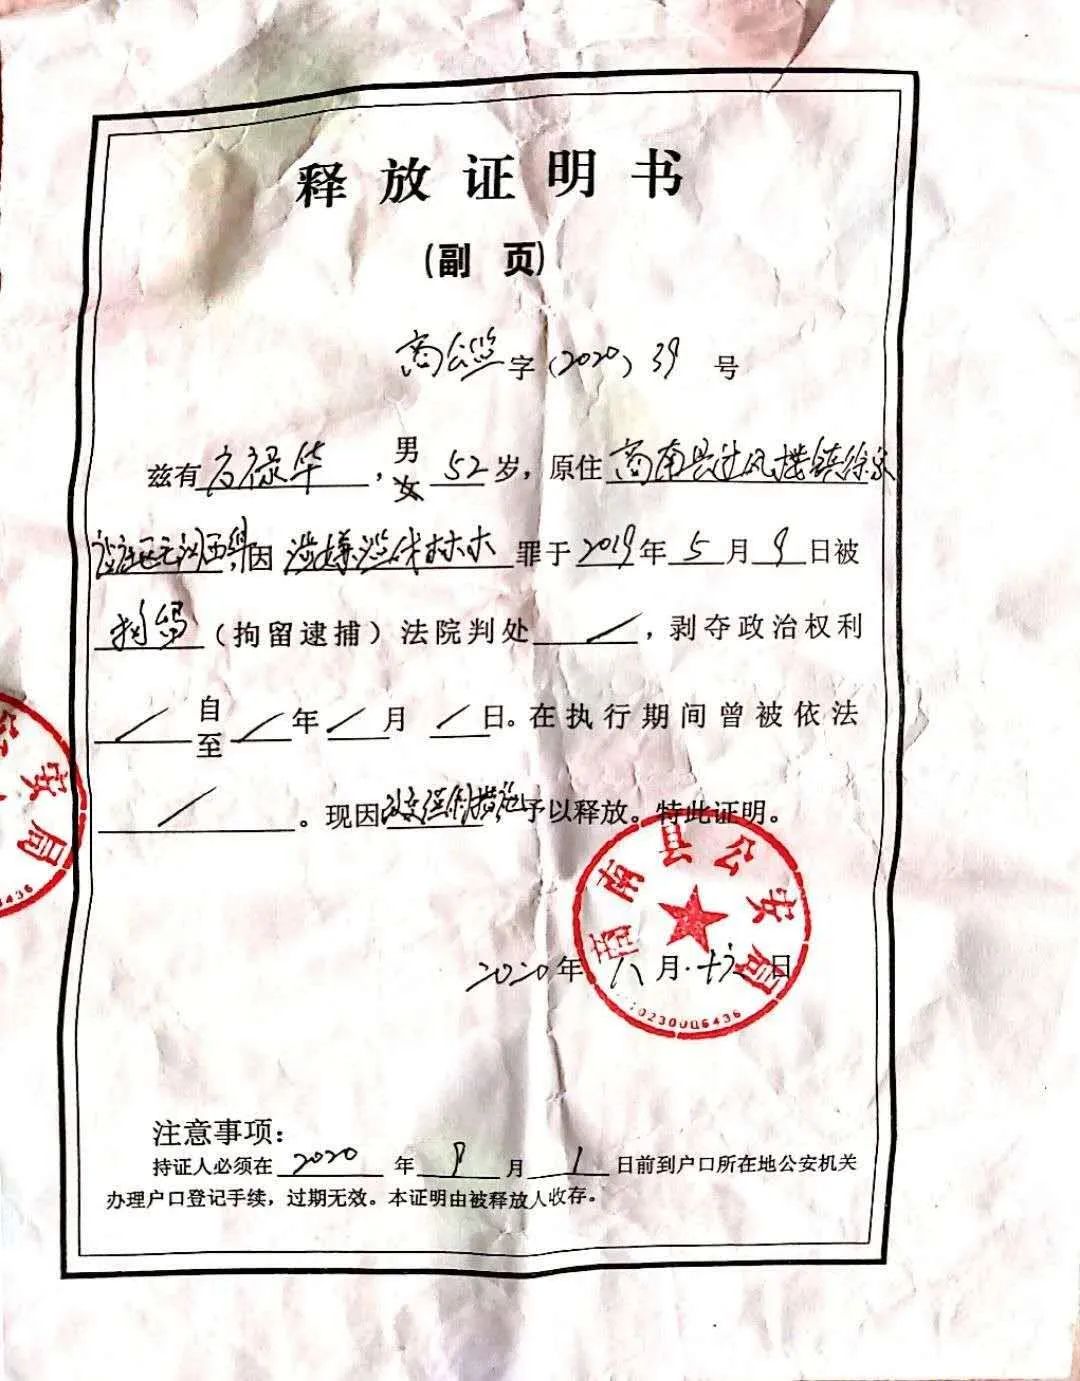 释放证明书
(副 页)
商公 字（2020）39 号
兹有方禄华，男 52 岁，原住商南县过风楼镇徐家
因涉嫌滥伐林木罪于2019年5月9日被
（拘留逮捕）法院判处／，剥夺政治权利
／自至／年／月／日。在执行期间曾被依法
／。现因改变强制措施予以释放。特此证明。
商南县公安局
2020年八月十六日
10230006436
公安局
436
注意事项：
持证人必须在2020年9月1日前到户口所在地公安机关
办理户口登记手续，过期无效。本证明由被释放人收存。